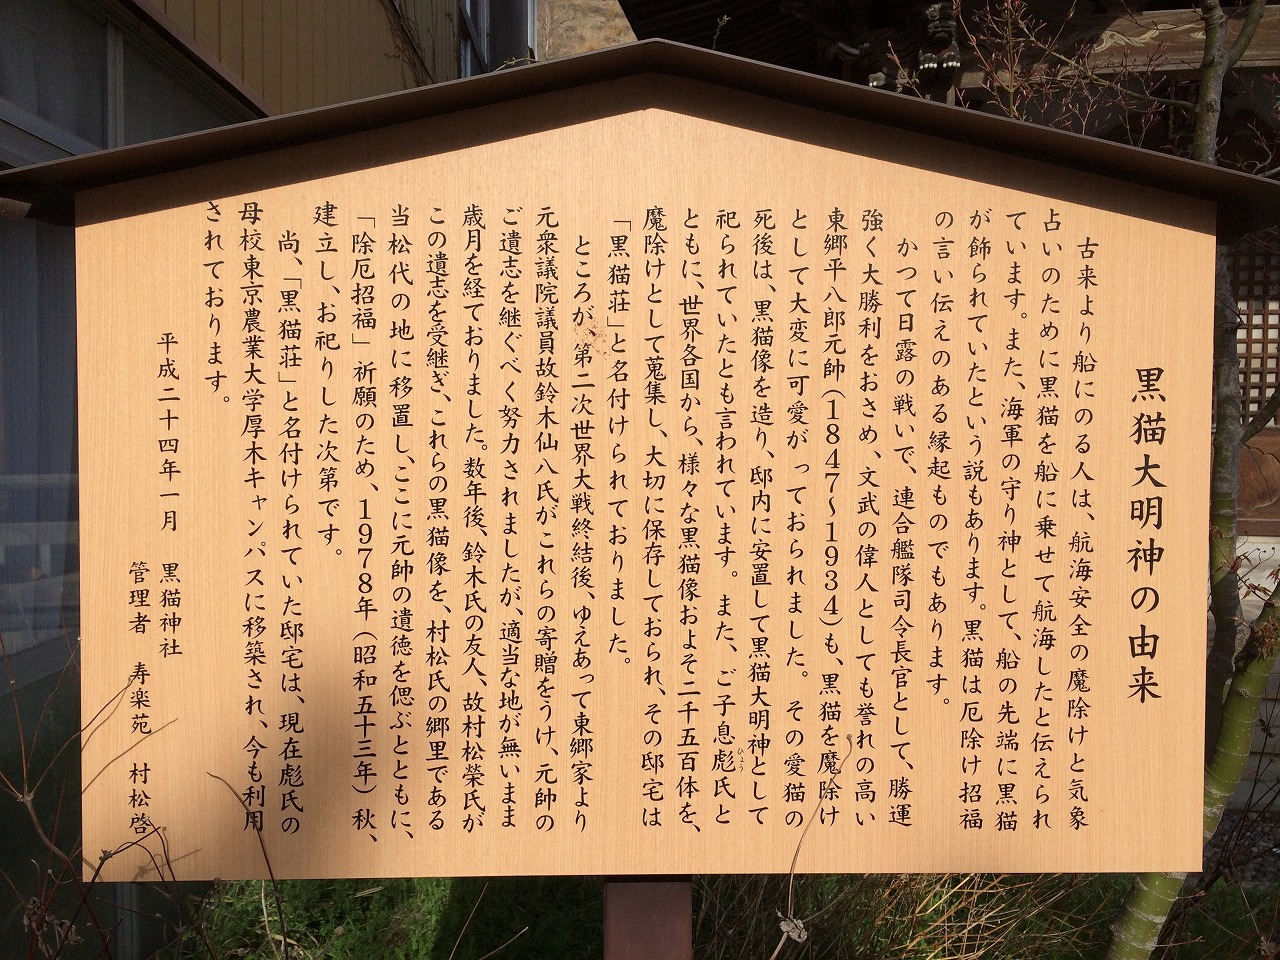 黒猫大明神の由来
古来より船にのる人は、航海安全の魔除けと気象
占いのために黒猫を船に乗せて航海したと伝えられ
ています。また、海軍の守り神として、船の先端に黒猫
が飾られていたという説もあります。黒猫は厄除け招福
の言い伝えのある縁起ものでもあります。
かつて日露の戦いで、連合艦隊司令長官として、勝運
強く大勝利をおさめ、文武の偉人としても誉れの高い
東郷平八郎元帥(1847〜1934)も、黒猫を魔除け
として大変に可愛がっておられました。その愛猫の
死後は、黒猫像を造り、邸内に安置して黒猫大明神として
祀られていたとも言われています。また、ご子息彪氏と
ひょう
ともに、世界各国から、様々な黒猫像およそ二千五百体を、
魔除けとして蒐集し、大切に保存しておられ、その邸宅は
「黒猫荘」と名付けられておりました。
ところが、第二次世界大戦終結後、ゆえあって東郷家より
元衆議院議員故鈴木仙八氏がこれらの寄贈をうけ、元帥の
ご遺志を継ぐべく努力されましたが、適当な地が無いまま
歳月を経ておりました。数年後、鈴木氏の友人、故村松榮氏が
この遺志を受継ぎ、これらの黒猫像を、村松氏の郷里である
当松代の地に移置し、ここに元帥の遺徳を偲ぶとともに、
「除厄招福」祈願のため、1978年(昭和五十三年)秋、
建立し、お祀りした次第です。
尚、「黒猫荘」と名付けられていた邸宅は、現在彪氏の
母校東京農業大学厚木キャンパスに移築され、今も利用
されております。
平成二十四年一月 黒猫神社
管理者 寿楽苑 村松啓